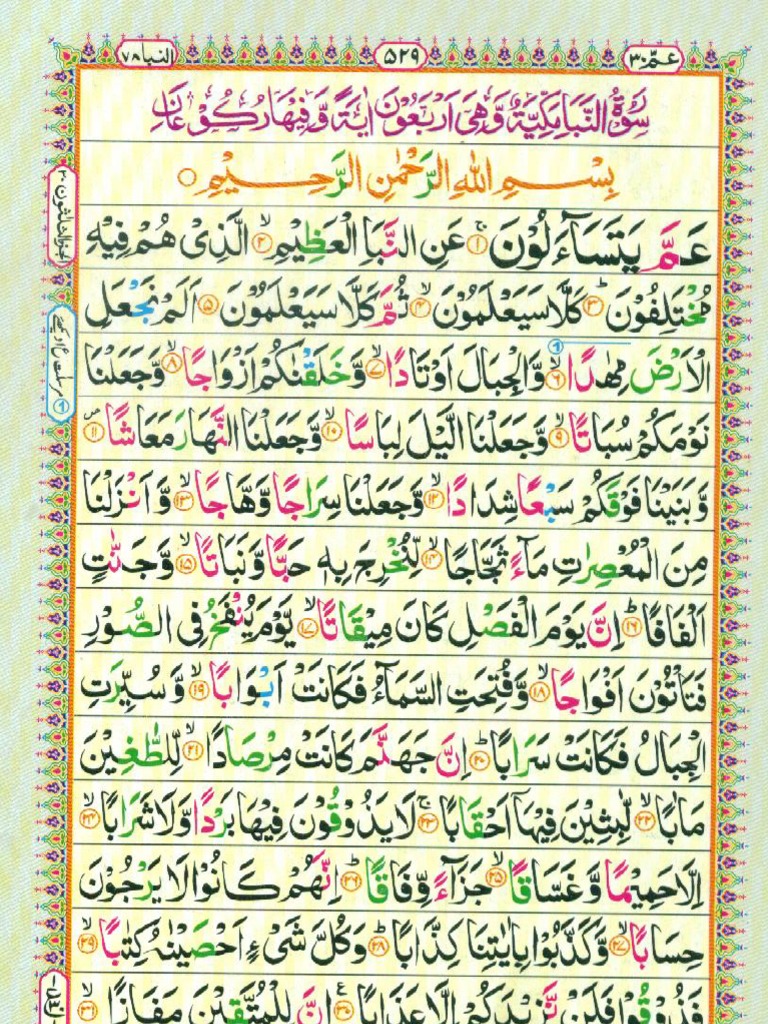 النبا ٧٨
٥٢٩
عمّ ٣٠
سُوْرَةُ النَّبَاِ مَكِّيَّةٌ وَّهِيَ اَرْبَعُوْنَ اٰيَةً وَّفِيْهَا رُكُوْعَانِ
بِسْمِ اللهِ الرَّحْمٰنِ الرَّحِيْمِ ○
عَمَّ يَتَسَآءَلُوْنَ ۚ﴿۱﴾ عَنِ النَّبَاِ الْعَظِيْمِ ۙ﴿۲﴾ الَّذِيْ هُمْ فِيْهِ
مُخْتَلِفُوْنَ ؕ﴿۳﴾ كَلَّا سَيَعْلَمُوْنَ ۙ﴿۴﴾ ثُمَّ كَلَّا سَيَعْلَمُوْنَ ﴿۵﴾ اَلَمْ نَجْعَلِ
الْاَرْضَ مِهٰدًا ۙ﴿۶﴾ وَّالْجِبَالَ اَوْتَادًا ۪ۙ﴿۷﴾ وَّخَلَقْنٰكُمْ اَزْوَاجًا ۙ﴿۸﴾ وَّجَعَلْنَا
نَوْمَكُمْ سُبَاتًا ۙ﴿۹﴾ وَّجَعَلْنَا الَّيْلَ لِبَاسًا ۙ﴿۱۰﴾ وَّجَعَلْنَا النَّهَارَ مَعَاشًا ۪﴿۱۱﴾
وَّبَنَيْنَا فَوْقَكُمْ سَبْعًا شِدَادًا ۙ﴿۱۲﴾ وَّجَعَلْنَا سِرَاجًا وَّهَّاجًا ۪ۙ﴿۱۳﴾ وَّاَنْزَلْنَا
مِنَ الْمُعْصِرٰتِ مَآءً ثَجَّاجًا ۙ﴿۱۴﴾ لِّنُخْرِجَ بِهٖ حَبًّا وَّنَبَاتًا ۙ﴿۱۵﴾ وَّجَنّٰتٍ
اَلْفَافًا ؕ﴿۱۶﴾ اِنَّ يَوْمَ الْفَصْلِ كَانَ مِيْقَاتًا ۙ﴿۱۷﴾ يَّوْمَ يُنْفَخُ فِي الصُّوْرِ
فَتَاْتُوْنَ اَفْوَاجًا ۙ﴿۱۸﴾ وَّفُتِحَتِ السَّمَآءُ فَكَانَتْ اَبْوَابًا ۙ﴿۱۹﴾ وَّسُيِّرَتِ
الْجِبَالُ فَكَانَتْ سَرَابًا ؕ﴿۲۰﴾ اِنَّ جَهَنَّمَ كَانَتْ مِرْصَادًا ۙ﴿۲۱﴾ لِّلطّٰغِيْنَ
مَاٰبًا ۙ﴿۲۲﴾ لّٰبِثِيْنَ فِيْهَاۤ اَحْقَابًا ۚ﴿۲۳﴾ لَا يَذُوْقُوْنَ فِيْهَا بَرْدًا وَّلَا شَرَابًا ۙ﴿۲۴﴾
اِلَّا حَمِيْمًا وَّغَسَّاقًا ۙ﴿۲۵﴾ جَزَآءً وِّفَاقًا ؕ﴿۲۶﴾ اِنَّهُمْ كَانُوْا لَا يَرْجُوْنَ
حِسَابًا ۙ﴿۲۷﴾ وَّكَذَّبُوْا بِاٰيٰتِنَا كِذَّابًا ؕ﴿۲۸﴾ وَكُلَّ شَيْءٍ اَحْصَيْنٰهُ كِتٰبًا ۙ﴿۲۹﴾
فَذُوْقُوْا فَلَنْ نَّزِيْدَكُمْ اِلَّا عَذَابًا ﴿۳۰﴾ اِنَّ لِلْمُتَّقِيْنَ مَفَازًا ۙ﴿۳۱﴾
الجزء الثلثون ٣٠